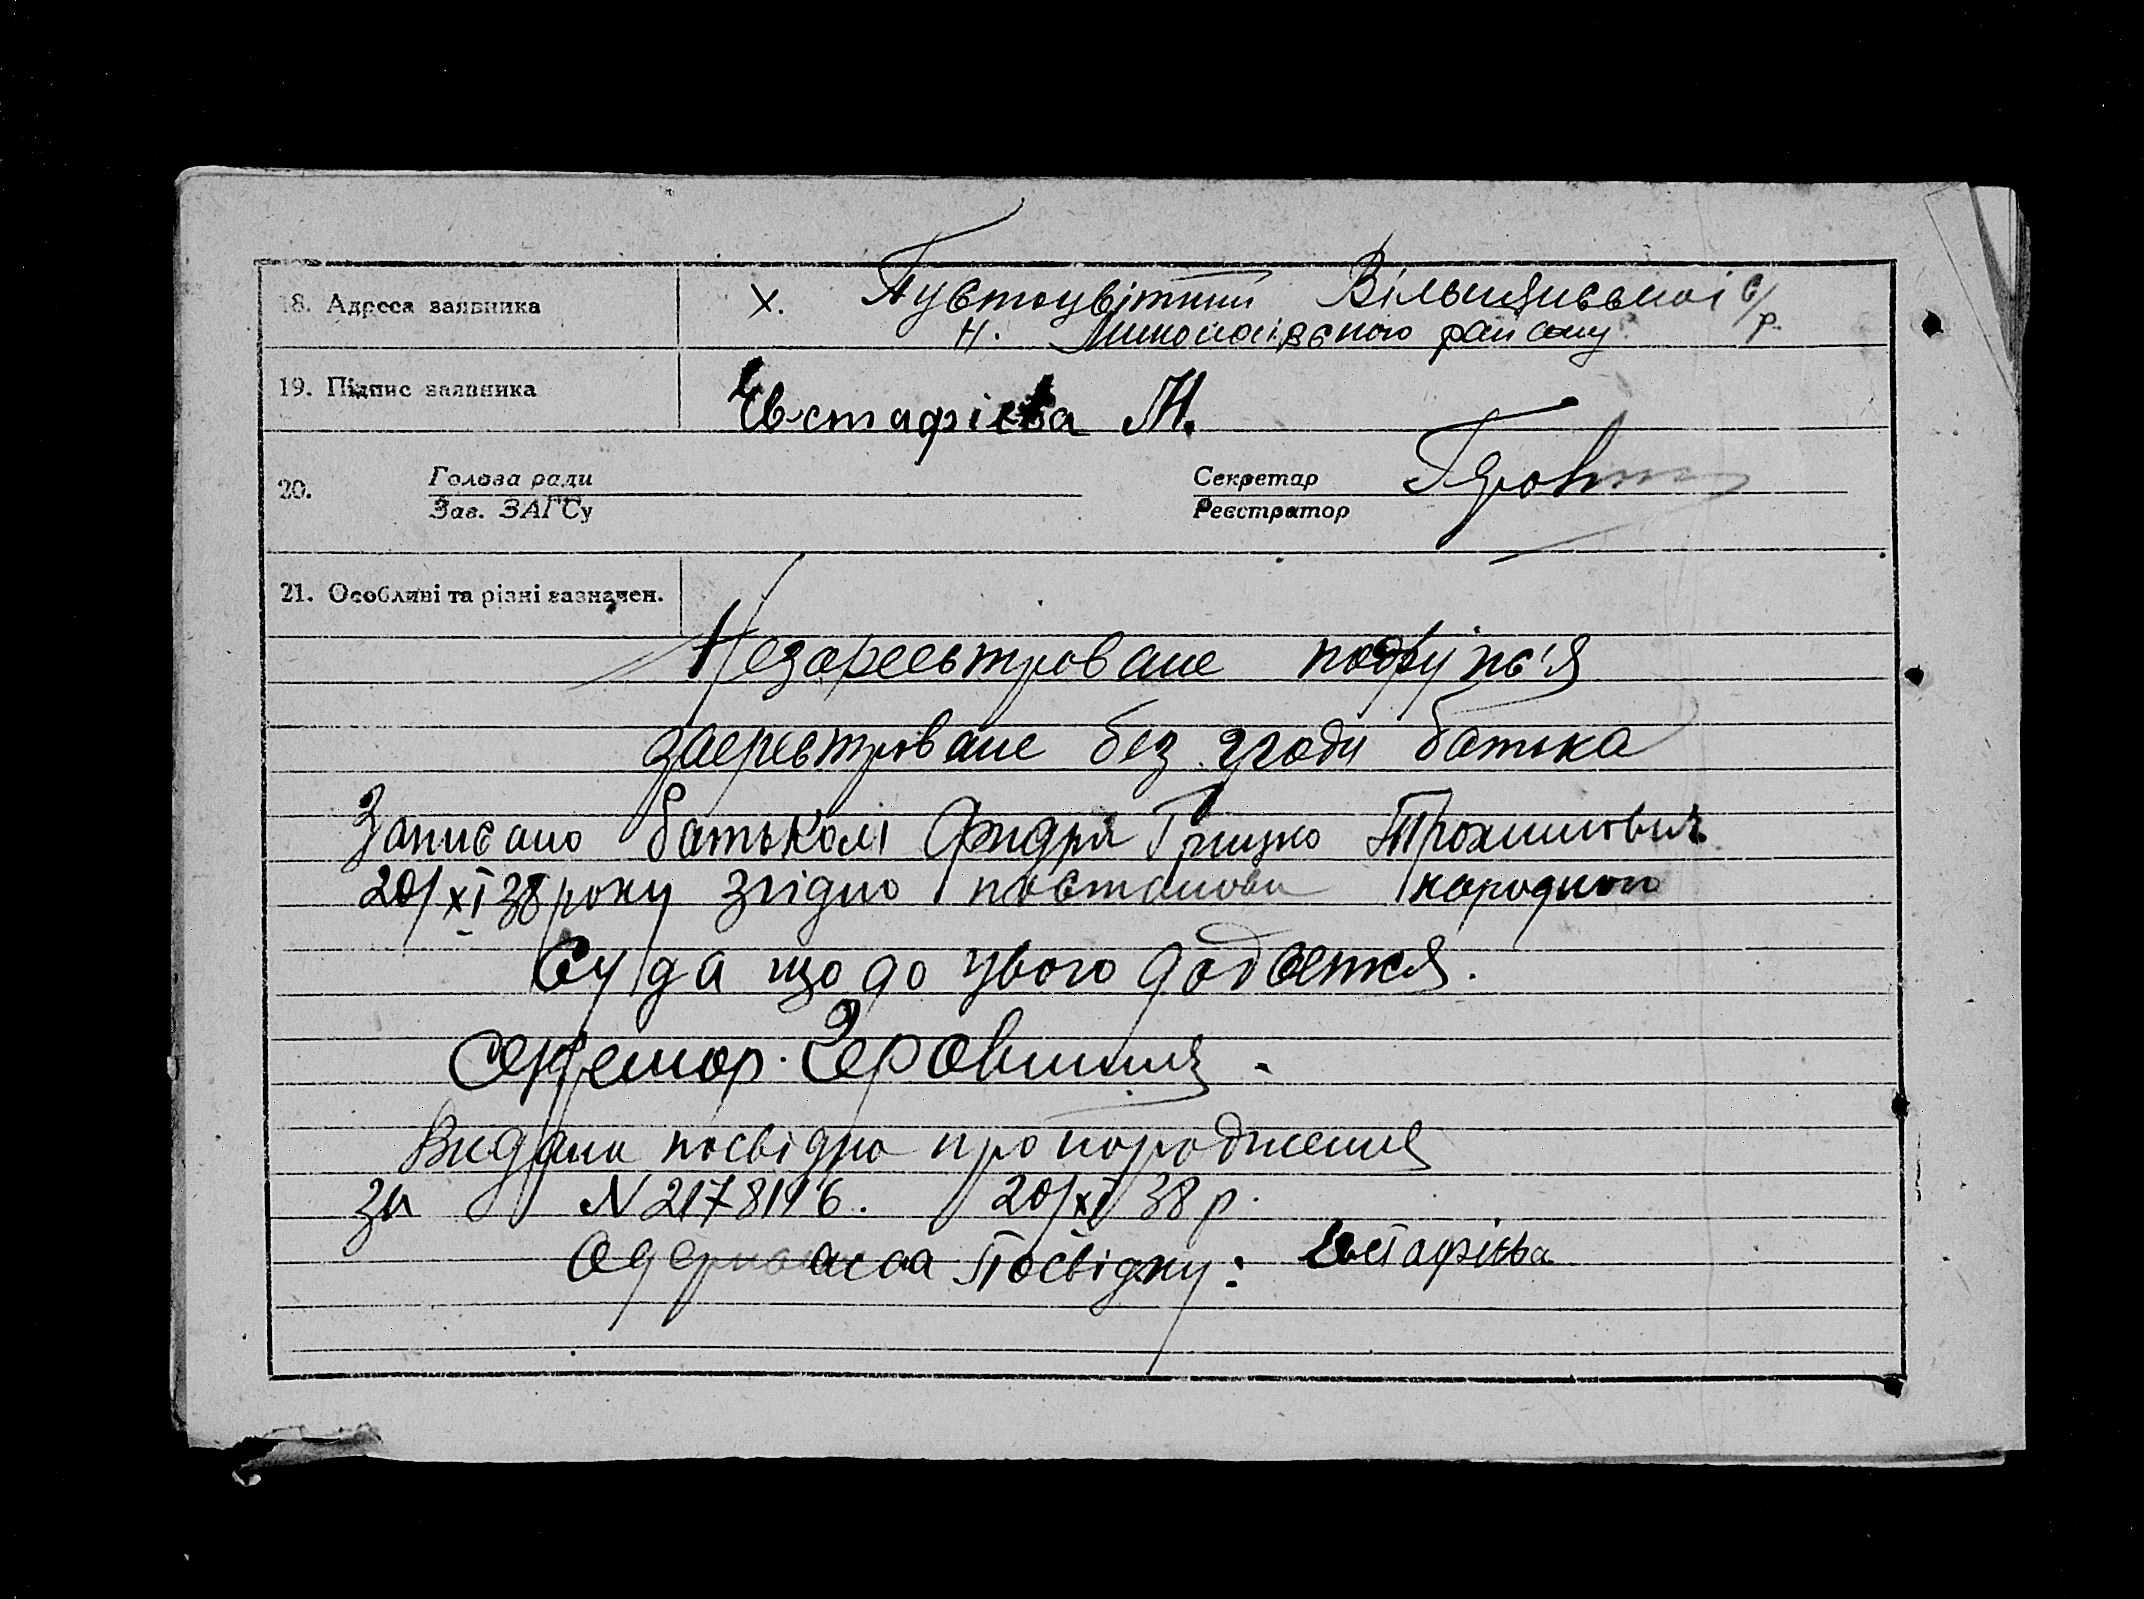 18. Адреса заявника х. Пустоцвітний Вільшанської с/р.
Н. Миколаївського району
19. Підпис заявника Євстафієва М.
20. Голова ради Секретар
Зав. ЗАГСу Реєстратор
21. Особливі та різні зазначен.
Незареєстроване подруж'я
зареєстроване без згоди батька
Записано батьком Грицко Трохимович
20/XI 38 року згідно постанови народного
Суда що до цього додається.
Секретар.
Видана посвідка про народження
за N 2178116. 20/XI 38 р.
Одержала Посвідку: Євстафієва